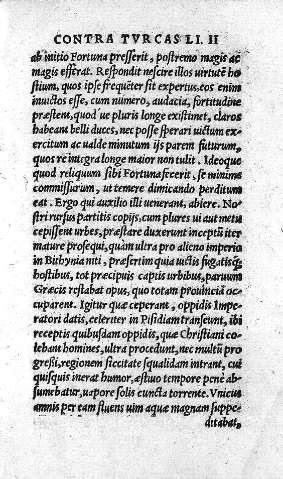 CONTRA TVRCAS LI. II
ab initio Fortuna presserit, postremo magis ac
magis efferat. Respondit nescire illos virtutẽ ho
stium, quos ipse frequẽter sit expertus. eos enim
inuictos esse, cum numero, audacia, fortitudine
præstent, quod ue pluris longe existimet, claros
habeant belli duces, nec posse sperari uictum ex-
ercitum ac ualde minutum ijs parem futurum,
quos re integra longe maior non tulit. Ideoque
quod reliquum sibi Fortuna fecerit, se minime
commissurum, ut temere dimicando perditum
eat. Ergo qui auxilio illi uenerant, abiere. No
stri rursus partitis copijs, cum plures ui aut metu
cepissent urbes, præstare duxerunt inceptũ iter
mature prosequi, quàm ultra pro alieno imperio
in Bithynia niti, præsertim quia uictis fugatisq́;
hostibus, tot præcipuis captis urbibus, paruum
Græcis restabat opus, quo totam prouinciã oc
cuparent. Igitur quæ ceperant, oppidis Impe-
ratori datis, celeriter in Pisidiam transeunt, ibi
receptis quibusdam oppidis, quæ Christiani co
lebant homines, ultra procedunt, nec multũ pro
gressi, regionem siccitate squalidam intrant, cui
quisquis inerat humor, æstiuo tempore penè ab-
sumebatur, uapore solis cuncta torrente. Vnicus
amnis per eam fluens uim aquæ magnam suppe-
ditabat,